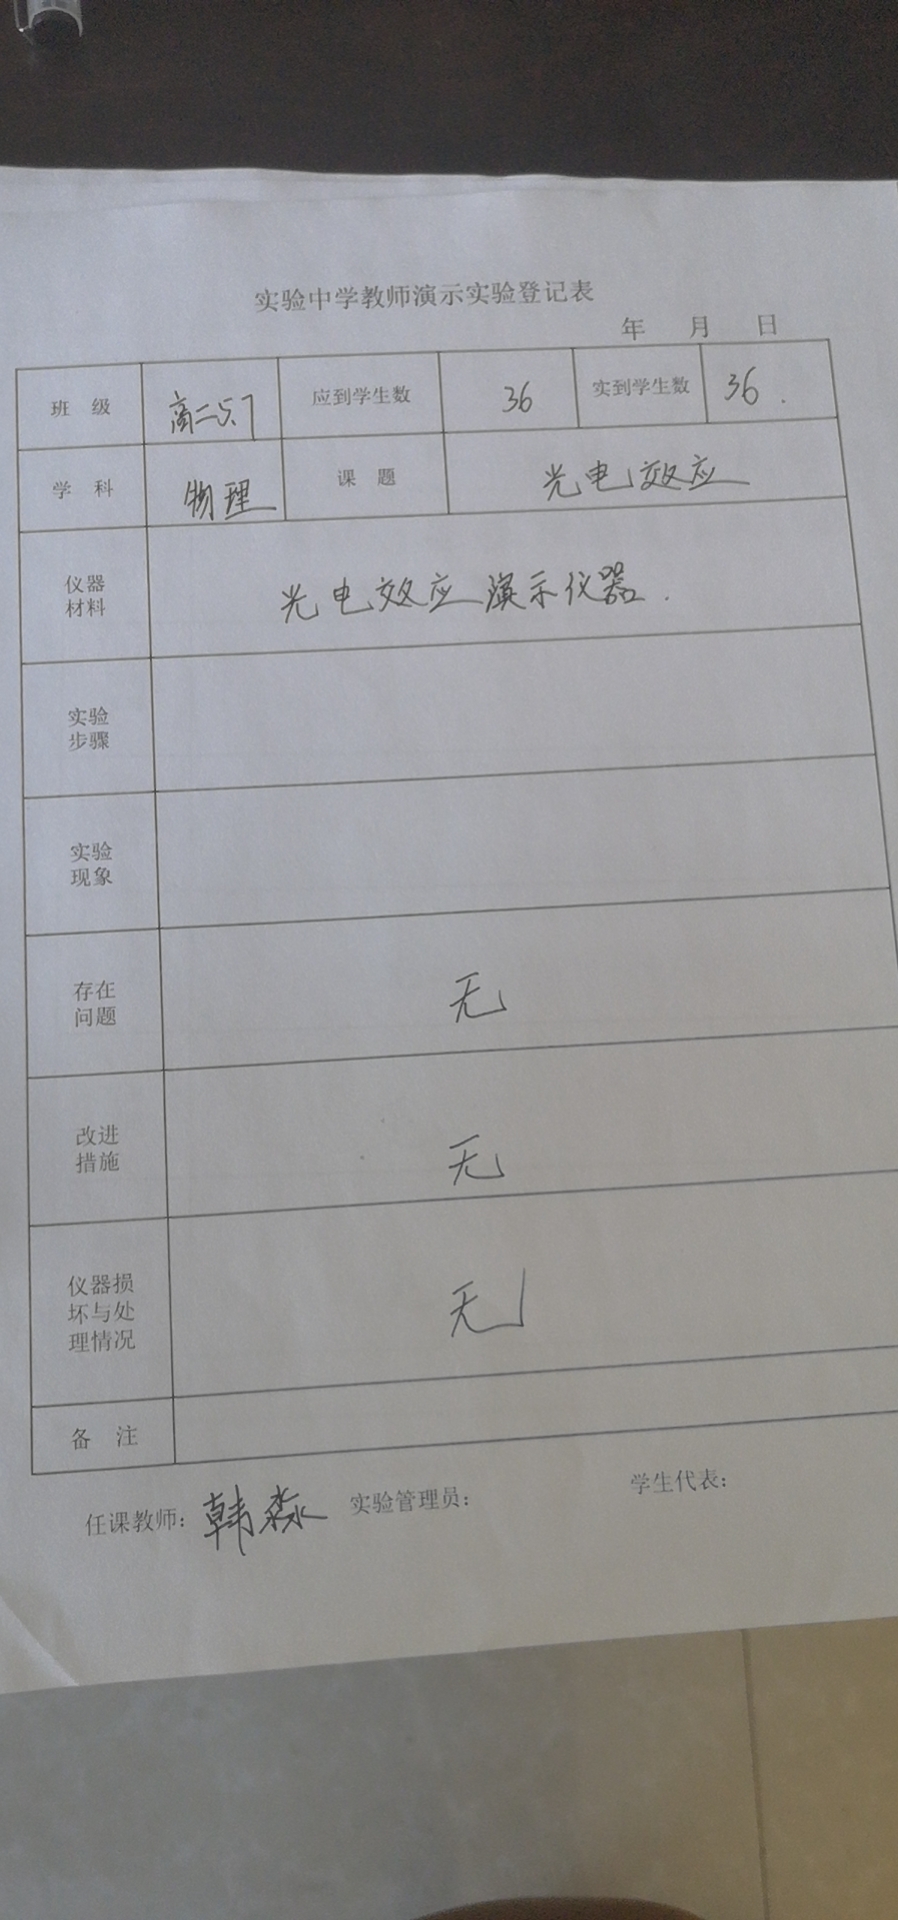 实验中学教师演示实验登记表
年 月 日
班 级 高二5.7 应到学生数 36 实到学生数 36.
学 科 物理 课 题 光电效应
仪器
材料
光电效应演示仪器.
实验
步骤
实验
现象
存在
问题
无
改进
措施
无
仪器损
坏与处
理情况
无
备 注
任课教师: 韩淼 实验管理员: 学生代表: